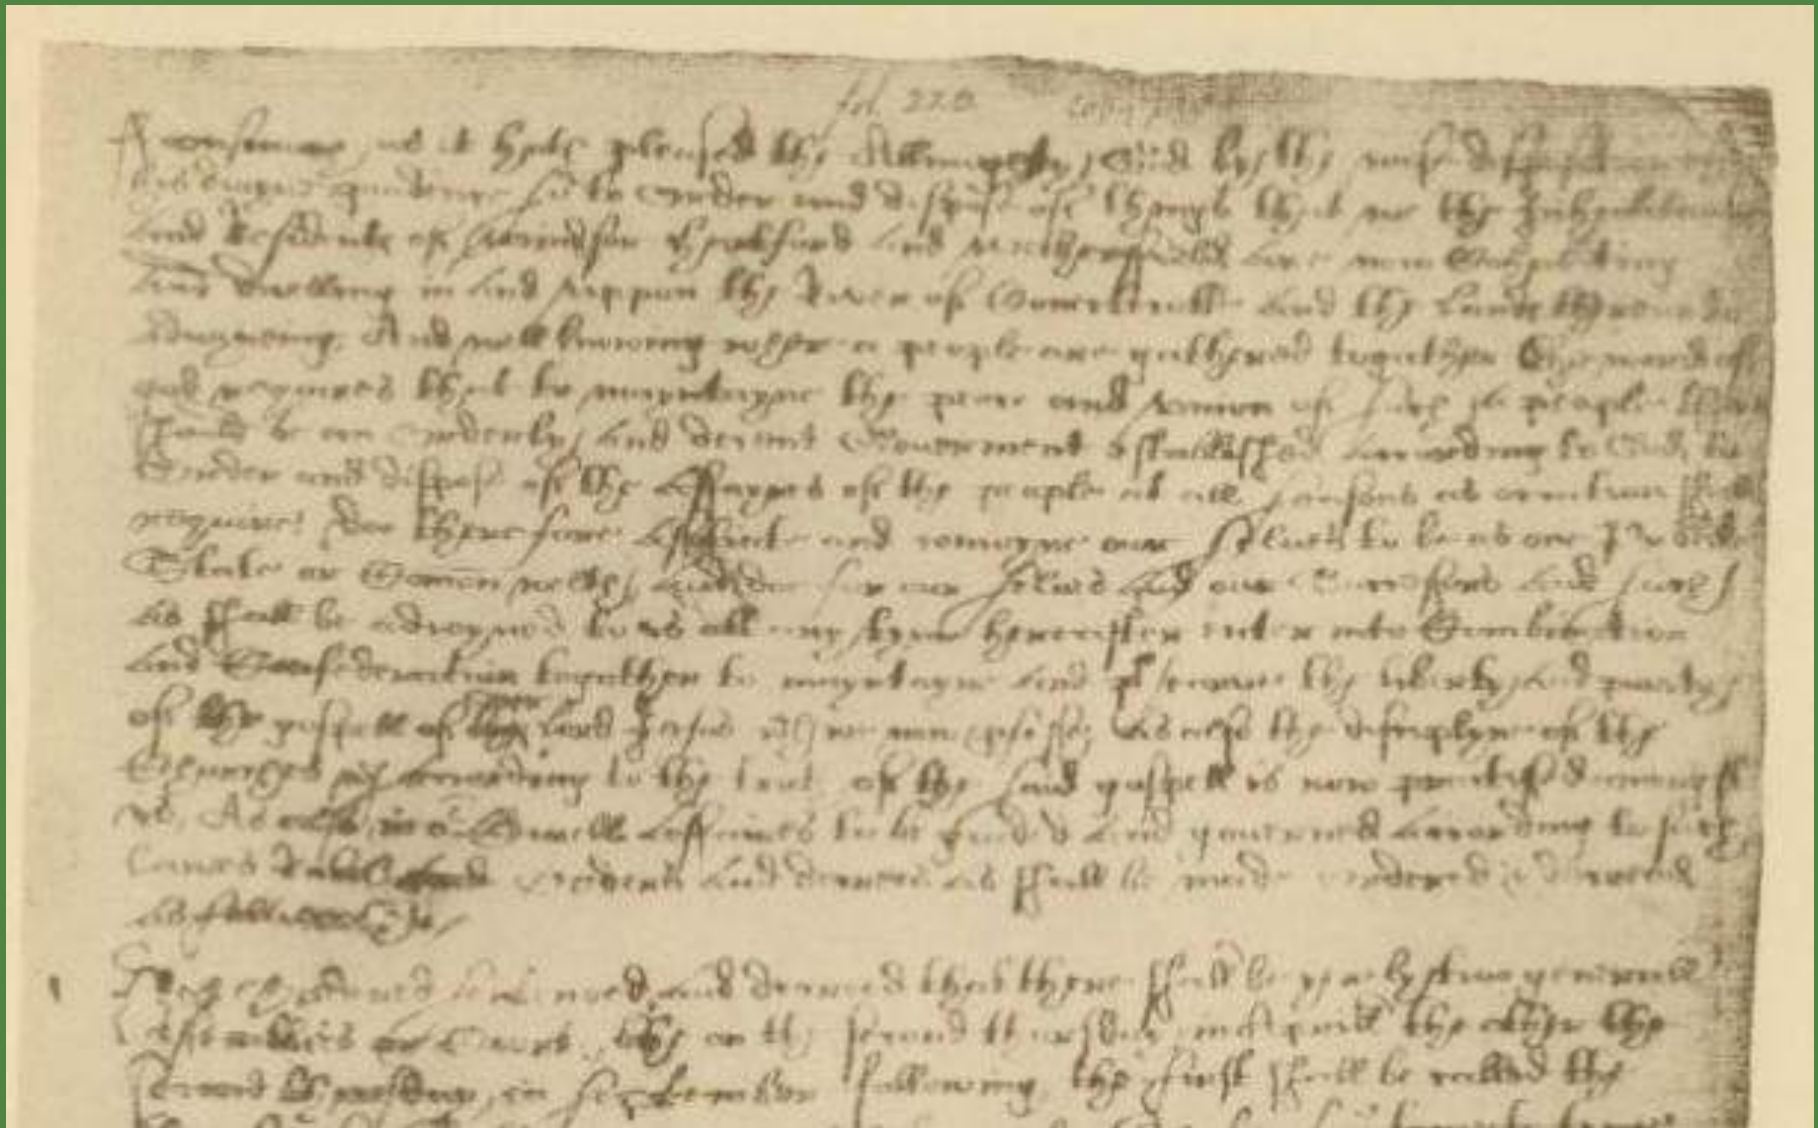 fol. 220
Forasmuch as it hath pleased the Allmighty God by the wise
divyne pruidence so to Order and dispose of things that we the Inhabitants
and Residents of Windsor Hartford and Wethersfield are now Cohabiting
and dwelling in and vppon the River of Conectecotte and the Lands thereunto
adioyneing; And well knowing where a people are gathered togather the word of
god requires that to mayntayne the peace and vnion of such a people there
should be an Orderly and decent Gouerment established according to God, to
Order and dispose of the affayres of the people at all seasons as occation shall
require; doe therefore assotiate and conioyne our selues to be as one Publike
State or Comon welth; and doe for our selues and our Successors and such
as shall be adioyned to vs att any tyme hereafter enter into Combination
and Confederation togather, to mayntayne and prsearue the liberty and purity
of the gospell of our Lord Jesus wch we now prfesse, as also the disciplyne of the
Churches wch according to the truth of the said gospell is now practised amongst
vs, As also in or Ciuell Affaires to be guided and gouerned according to such
Lawes Rules and Orders and decrees as shall be made ordered & decreed
as followeth
1 It is Ordered sentenced and decreed that there shall be yearely two generall
Assemblies or Courts, the on the second thursday in Aprill, the other the
second thursday in September following, the first shall be called the